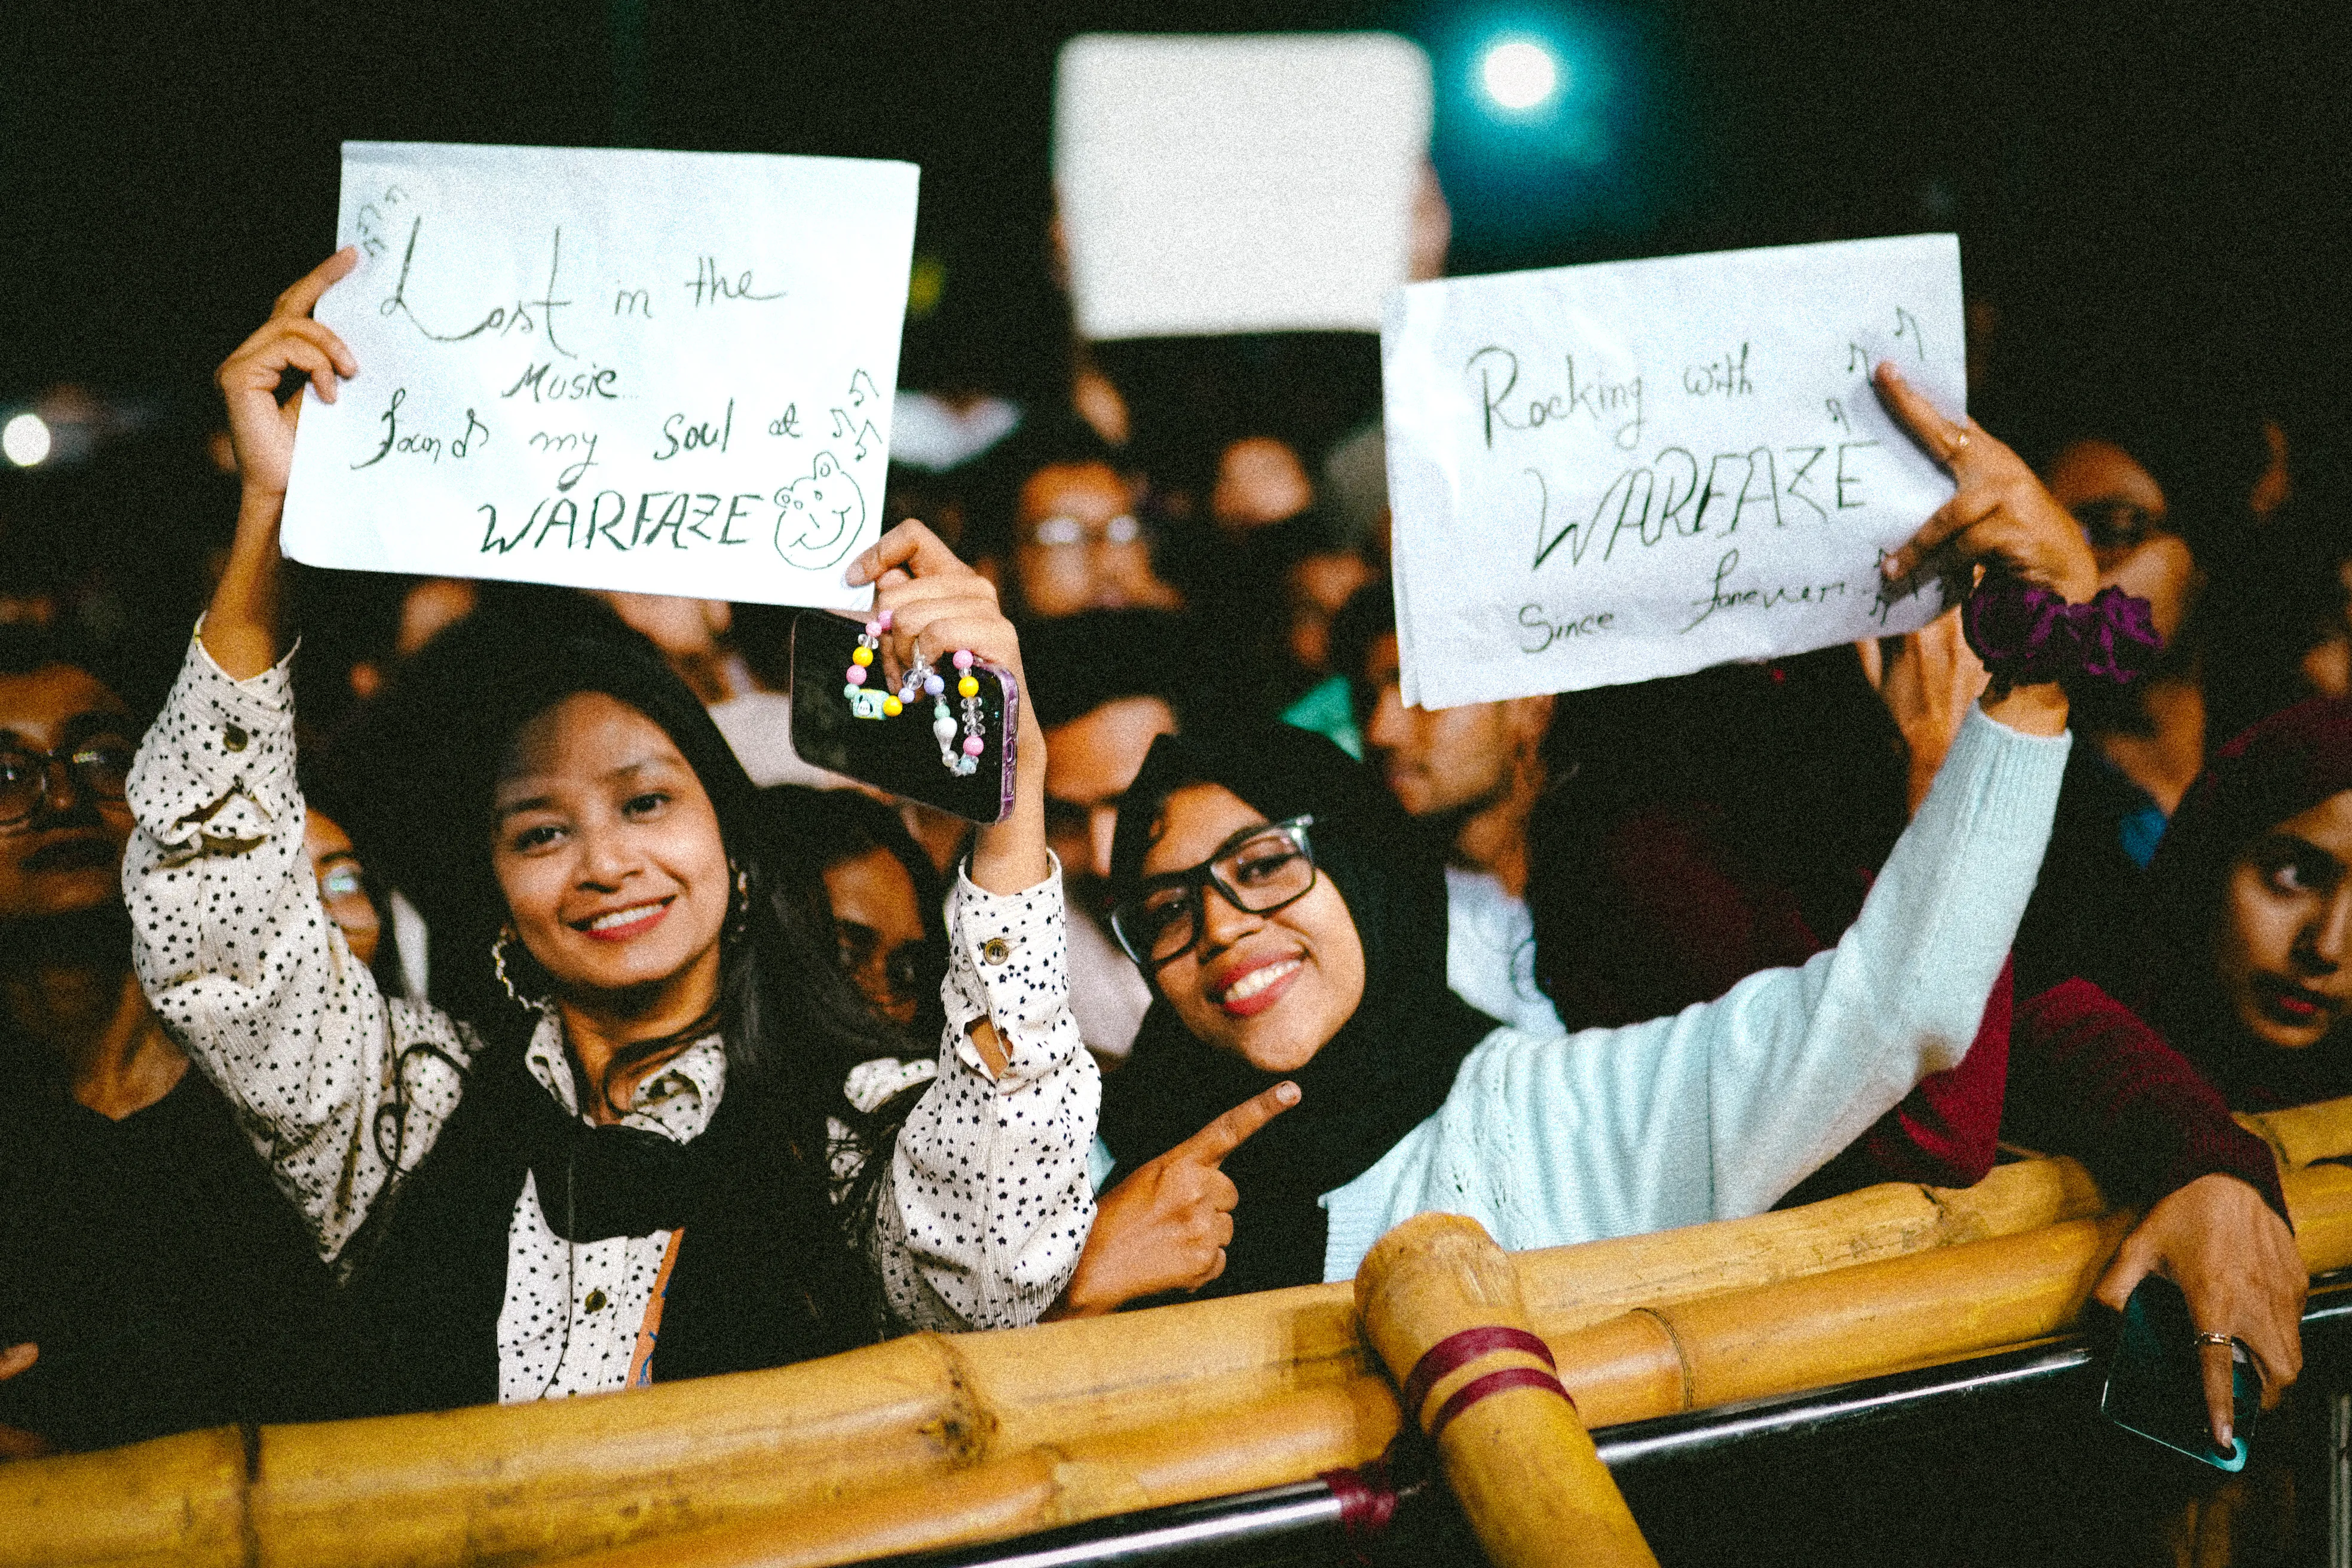 Lost in the
Music...
found my soul at
WARFAZE
Rocking with
WARFAZE
Since forever